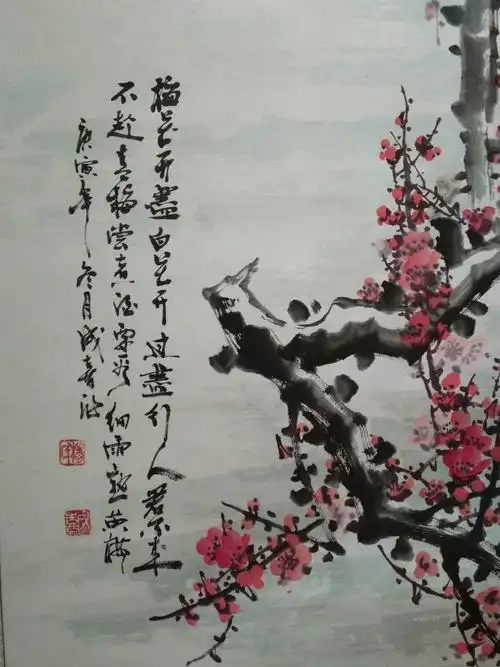 梅花开盡白花开过盡行人君不来
不趁青梅尝煮酒要看细雨熟黄梅
庚寅年冬月